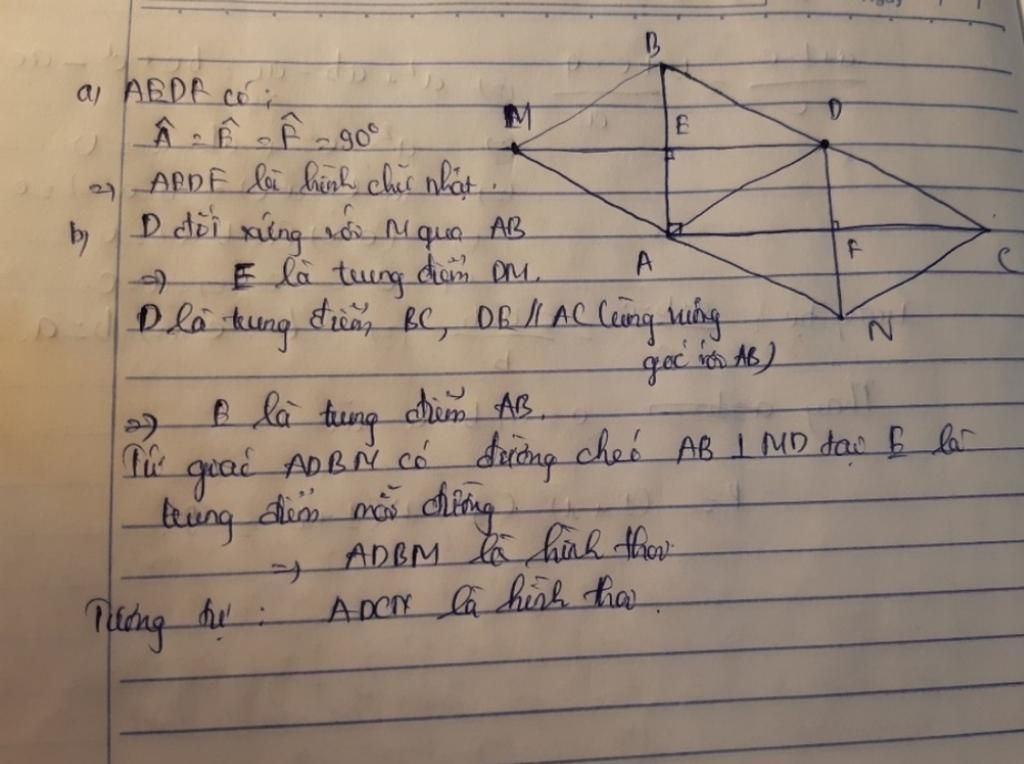 B
M
E
D
A
F
C
N
a) AEDF có:
Â = Ê = F̂ = 90°
=) AEDF là hình chữ nhật.
b) D đối xứng với M qua AB
=) E là trung điểm DM.
D là trung điểm BC, DE // AC (cùng vuông
góc với AB)
=) E là trung điểm AB.
Tứ giác ADBM có đường chéo AB ⊥ MD tại E là
trung điểm mỗi đường
=) ADBM là hình thoi
Tương tự: ADCN là hình thoi.